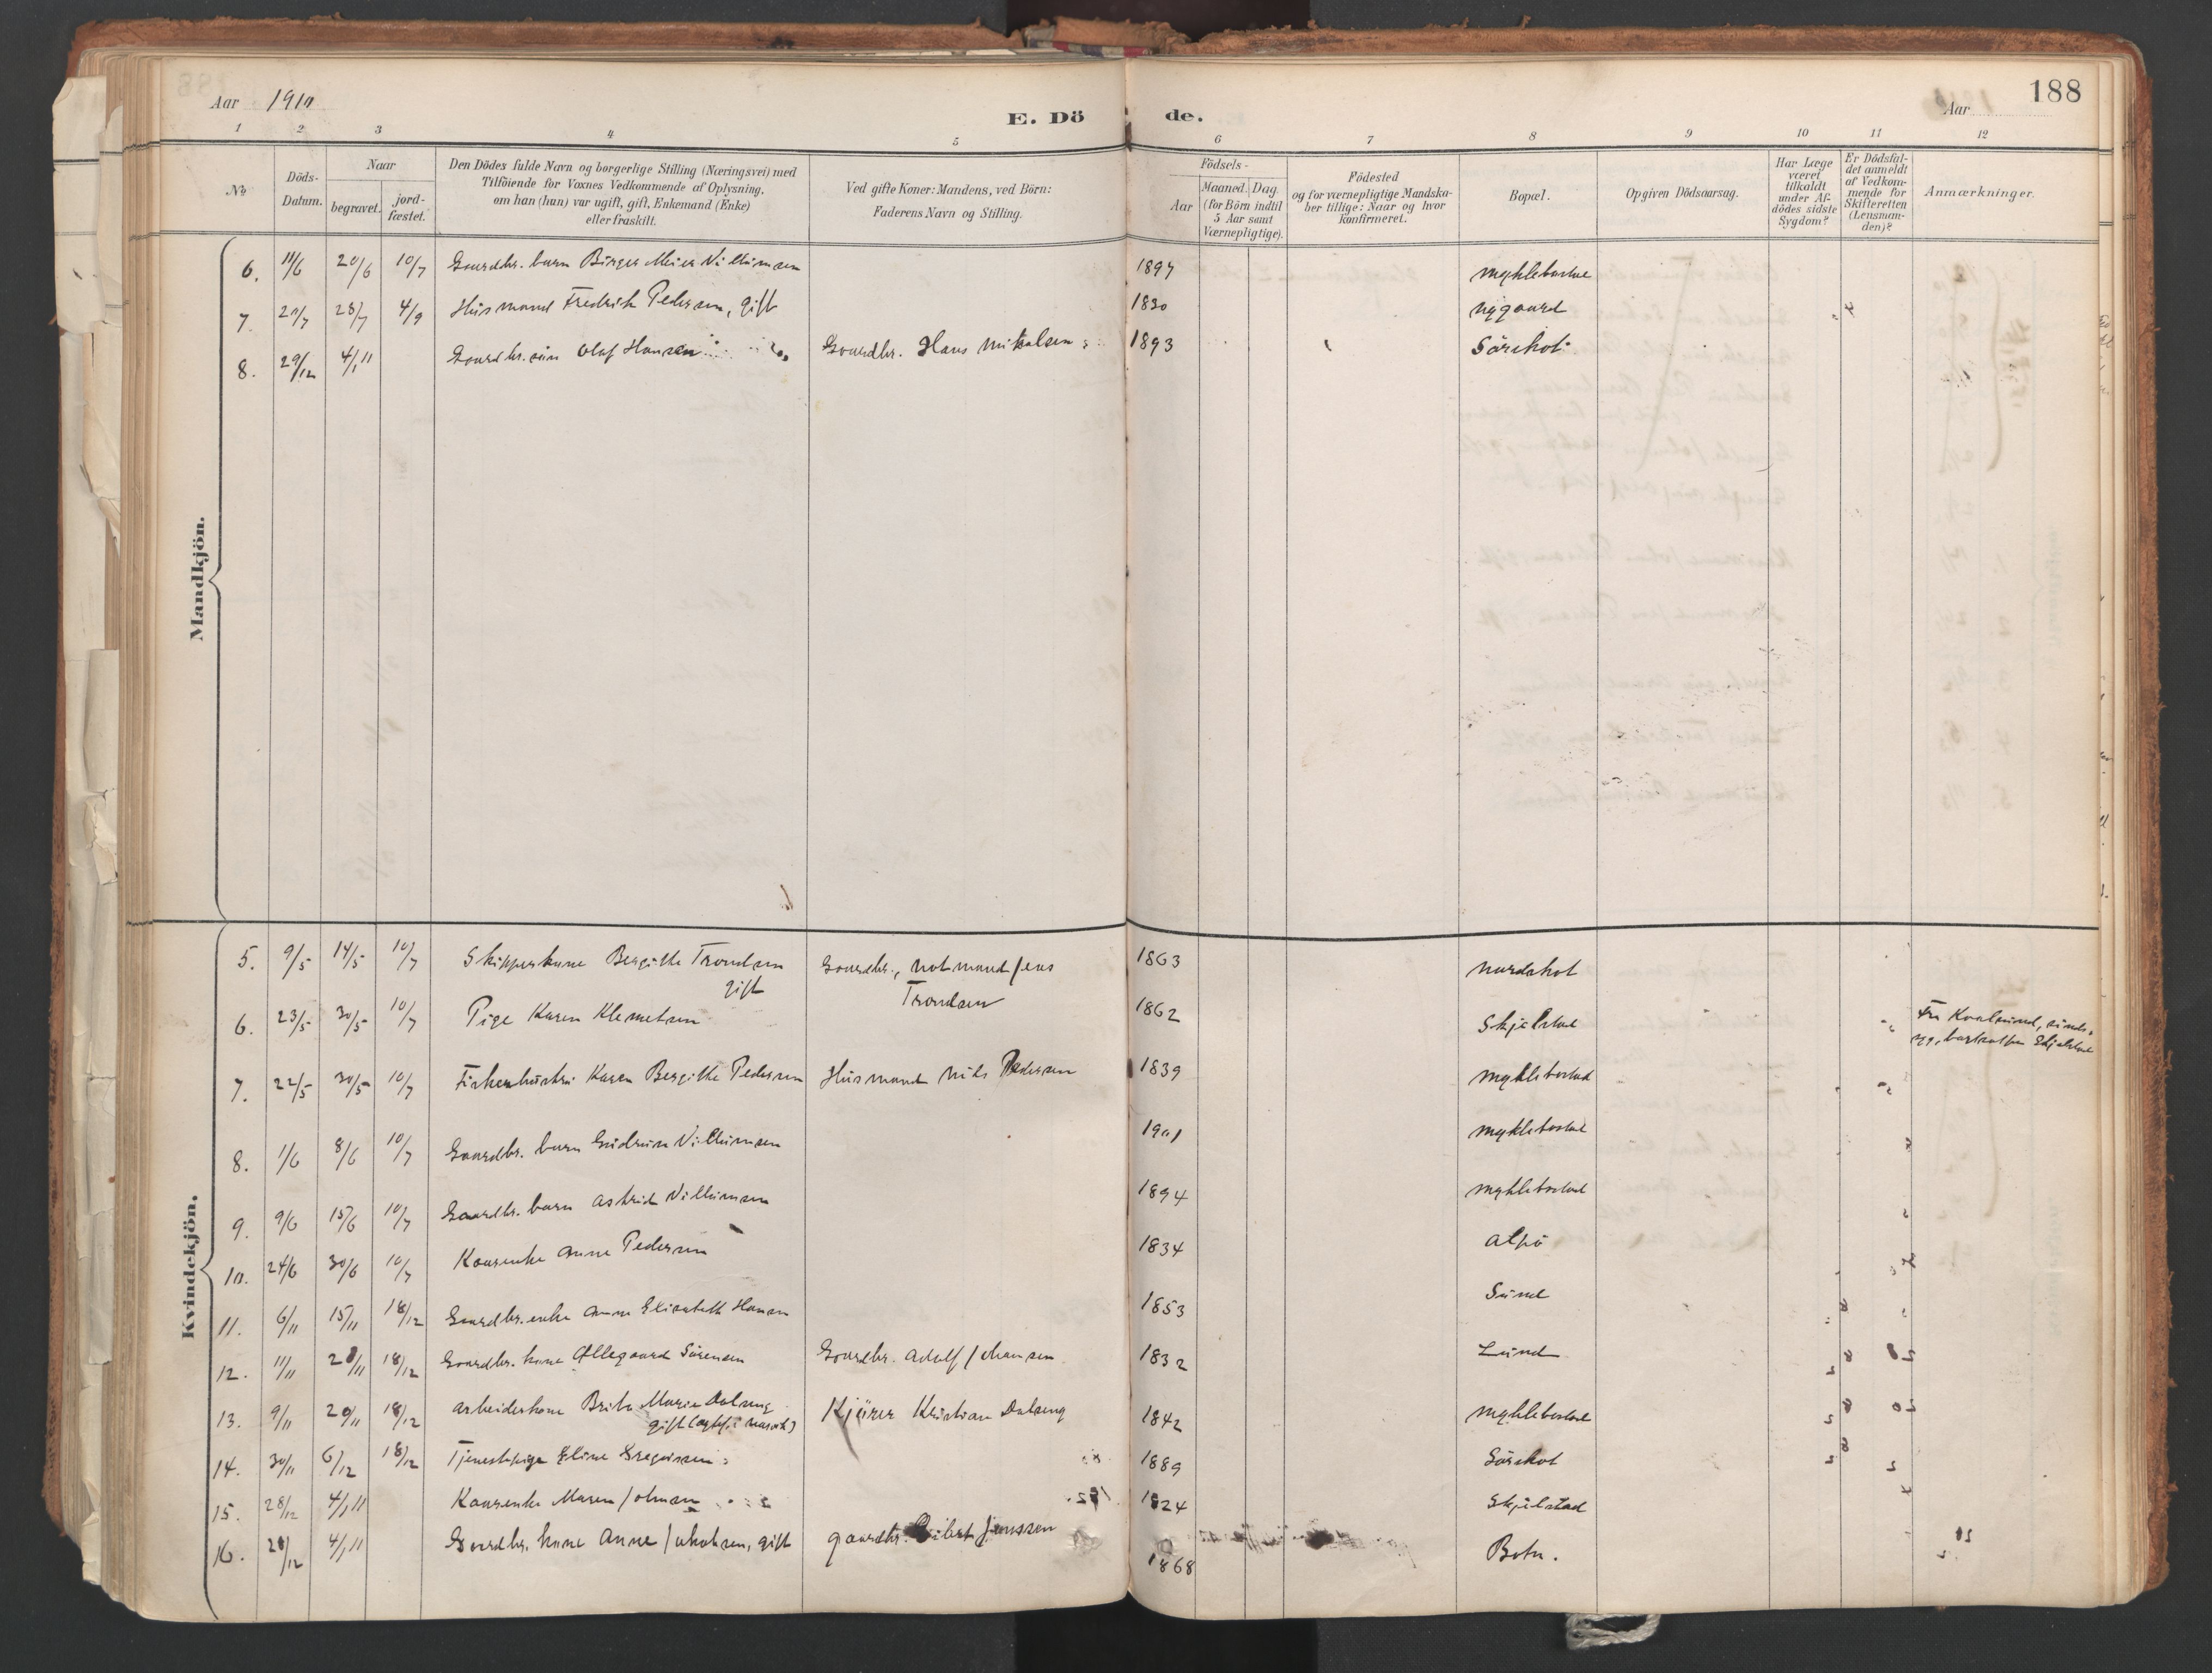 188
Aar 1910
E. Dö
de.
Aar
1 2 3 4 5 6 7 8 9 10 11 12
No
Döds-
Datum.
Naar
begravet.
jord-
fæstet.
Den Dödes fulde Navn og borgerlige Stilling (Næringsvei) med
Tilföiende for Voxnes Vedkommende af Oplysning,
om han (hun) var ugift, gift, Enkemand (Enke)
eller fraskilt.
Ved gifte Koner: Mandens, ved Börn:
Faderens Navn og Stilling.
Födsels-
Aar
Maaned. Dag
(for Börn indtil
5 Aar samt
Værnepligtige).
Födested
og for værnepligtige Mandska-
ber tillige: Naar og hvor
konfirmeret.
Bopæl.
Opgiven Dödsaarsag.
Har Læge
været
tilkaldt
under Af-
dödes sidste
Sygdom?
Er Dödsfal-
det anmeldt
af Vedkom-
mende for
Skifteretten
(Lensman-
den)?
Anmærkninger.
Mandkjön.
6. 11/6 20/6 10/7 Gaardbr. barn Birger Meier Villumsen 1897 Myklebostad
7. 21/7 28/7 4/9 Husmand Fredrik Pedersen, gift 1830 Nygaard
8. 29/12 4/1 11 Gaardbr. sön Olaf Hansen Gaardbr. Hans Mikalsen 1893 Sörskot
Kvindekjön.
5. 9/5 14/5 10/7 Skipperkone Bergitte Trondsen Gaardbr., notmand Jens 1863 Nordskot
gift Trondsen
6. 23/5 30/5 10/7 Pige Karen Klemetsen 1862 Skjelstad Fra
7. 22/5 30/5 10/7 Karen Bergitte Pedersen Husmand Nils Pedersen 1839 Myklebostad
8. 1/6 8/6 10/7 Gaardbr. barn Gudrun Villumsen 1901 Myklebostad
9. 9/6 15/6 10/7 Gaardbr. barn Astrid Villumsen 1894 Myklebostad
10. 24/6 30/6 10/7 Kaarenke Anne Pedersen 1834
11. 6/11 15/11 18/12 Gaardbr. enke Anne Elisabeth Hansen 1853 Sund
12. 11/11 18/12 Gaardbr. kone Ollegaard Sörensen Gaardbr. Adolf Johansen 1832 Lund
13. 9/11 20/11 18/12 Arbeiderkone Berit Marie Dalseng Kjörer Kristian Dalseng 1842 Myklebostad
gift
14. 30/11 6/12 18/12 Tjenestepige Eline Gregersen 1889 Sörskot
15. 28/12 4/1 11 Kaarenke Maren Johnsen 1824 Skjelstad
16. 4/1 11 Gaardbr. kone Anne Jakobsen, gift Gaardbr. Jenssen 1868 Botn.